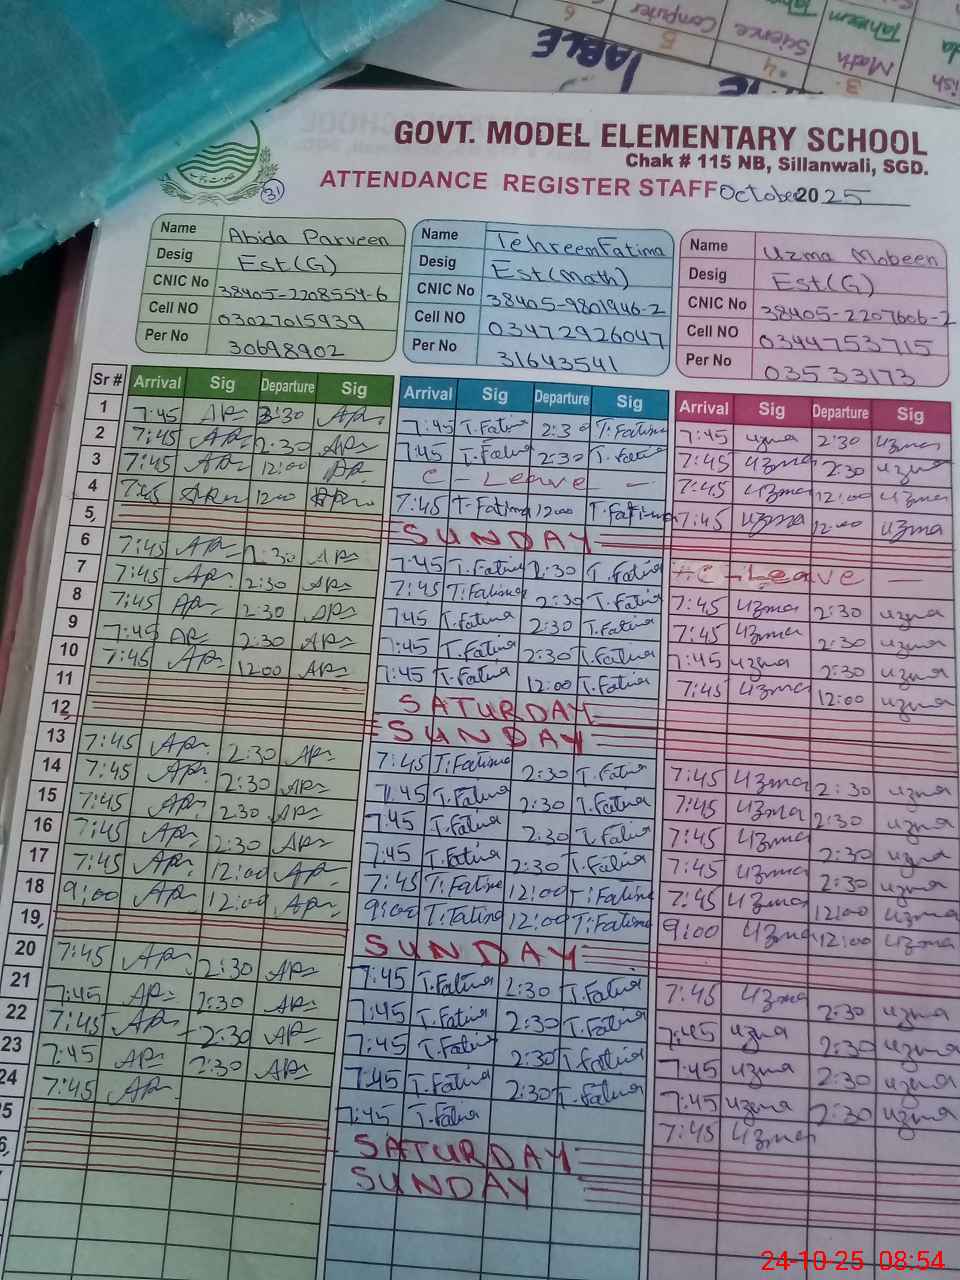 TABLE
Computer
Science
Math
Tahreem
GOVT. MODEL ELEMENTARY SCHOOL
Chak # 115 NB, Sillanwali, SGD.
ATTENDANCE REGISTER STAFF October 2025
31
Name Abida Parveen
Desig Est(G)
CNIC No 38405-2208554-6
Cell NO 03027015939
Per No 30698902
Name Tehreem Fatima
Desig Est(Math)
CNIC No 38405-9801946-2
Cell NO 03472926047
Per No 31643541
Name Uzma Mobeen
Desig Est(G)
CNIC No 38405-2207606-2
Cell NO 03447753715
Per No 03533173
Sr # Arrival Sig Departure Sig Arrival Sig Departure Sig Arrival Sig Departure Sig
1 7:45 2:30 7:45 T.Fatima 2:30 T.Fatima 7:45 uzma 2:30 uzma
2 7:45 2:30 7:45 T.Fatima 2:30 T.Fatima 7:45 uzma 2:30 uzma
3 7:45 12:00 C-Leave - 7:45 uzma 12:00 uzma
4 7:45 12:00 7:45 T.Fatima 12:00 T.Fatima 7:45 uzma 12:00 uzma
5, SUNDAY
6 7:45 2:30 7:45 T.Fatima 2:30 T.Fatima C-Leave -
7 7:45 2:30 7:45 T.Fatima 2:30 T.Fatima 7:45 uzma 2:30 uzma
8 7:45 2:30 745 T.Fatima 2:30 T.Fatima 7:45 uzma 2:30 uzma
9 7:45 2:30 7:45 T.Fatima 2:30 T.Fatima 7:45 uzma 2:30 uzma
10 7:45 12:00 7:45 T.Fatima 12:00 T.Fatima 7:45 uzma 12:00 uzma
11 SATURDAY
12, SUNDAY
13 7:45 2:30 7:45 T.Fatima 2:30 T.Fatima 7:45 uzma 2:30 uzma
14 7:45 2:30 7:45 T.Fatima 2:30 T.Fatima 7:45 uzma 2:30 uzma
15 7:45 2:30 7:45 T.Fatima 2:30 T.Fatima 7:45 uzma 2:30 uzma
16 7:45 2:30 7:45 T.Fatima 2:30 T.Fatima 7:45 uzma 2:30 uzma
17 7:45 12:00 7:45 T.Fatima 12:00 T.Fatima 7:45 uzma 12:00 uzma
18 9:00 12:00 9:00 T.Fatima 12:00 T.Fatima 9:00 uzma 12:00 uzma
19, SUNDAY
20 7:45 2:30 7:45 T.Fatima 2:30 T.Fatima 7:45 uzma 2:30 uzma
21 7:45 2:30 7:45 T.Fatima 2:30 T.Fatima 7:45 uzma 2:30 uzma
22 7:45 2:30 7:45 T.Fatima 2:30 T.Fatima 7:45 uzma 2:30 uzma
23 7:45 2:30 7:45 T.Fatima 2:30 T.Fatima 7:45 uzma 2:30 uzma
24 7:45 7:45 T.Fatima 7:45 uzma
25 SATURDAY
SUNDAY
24-10-25 08:54